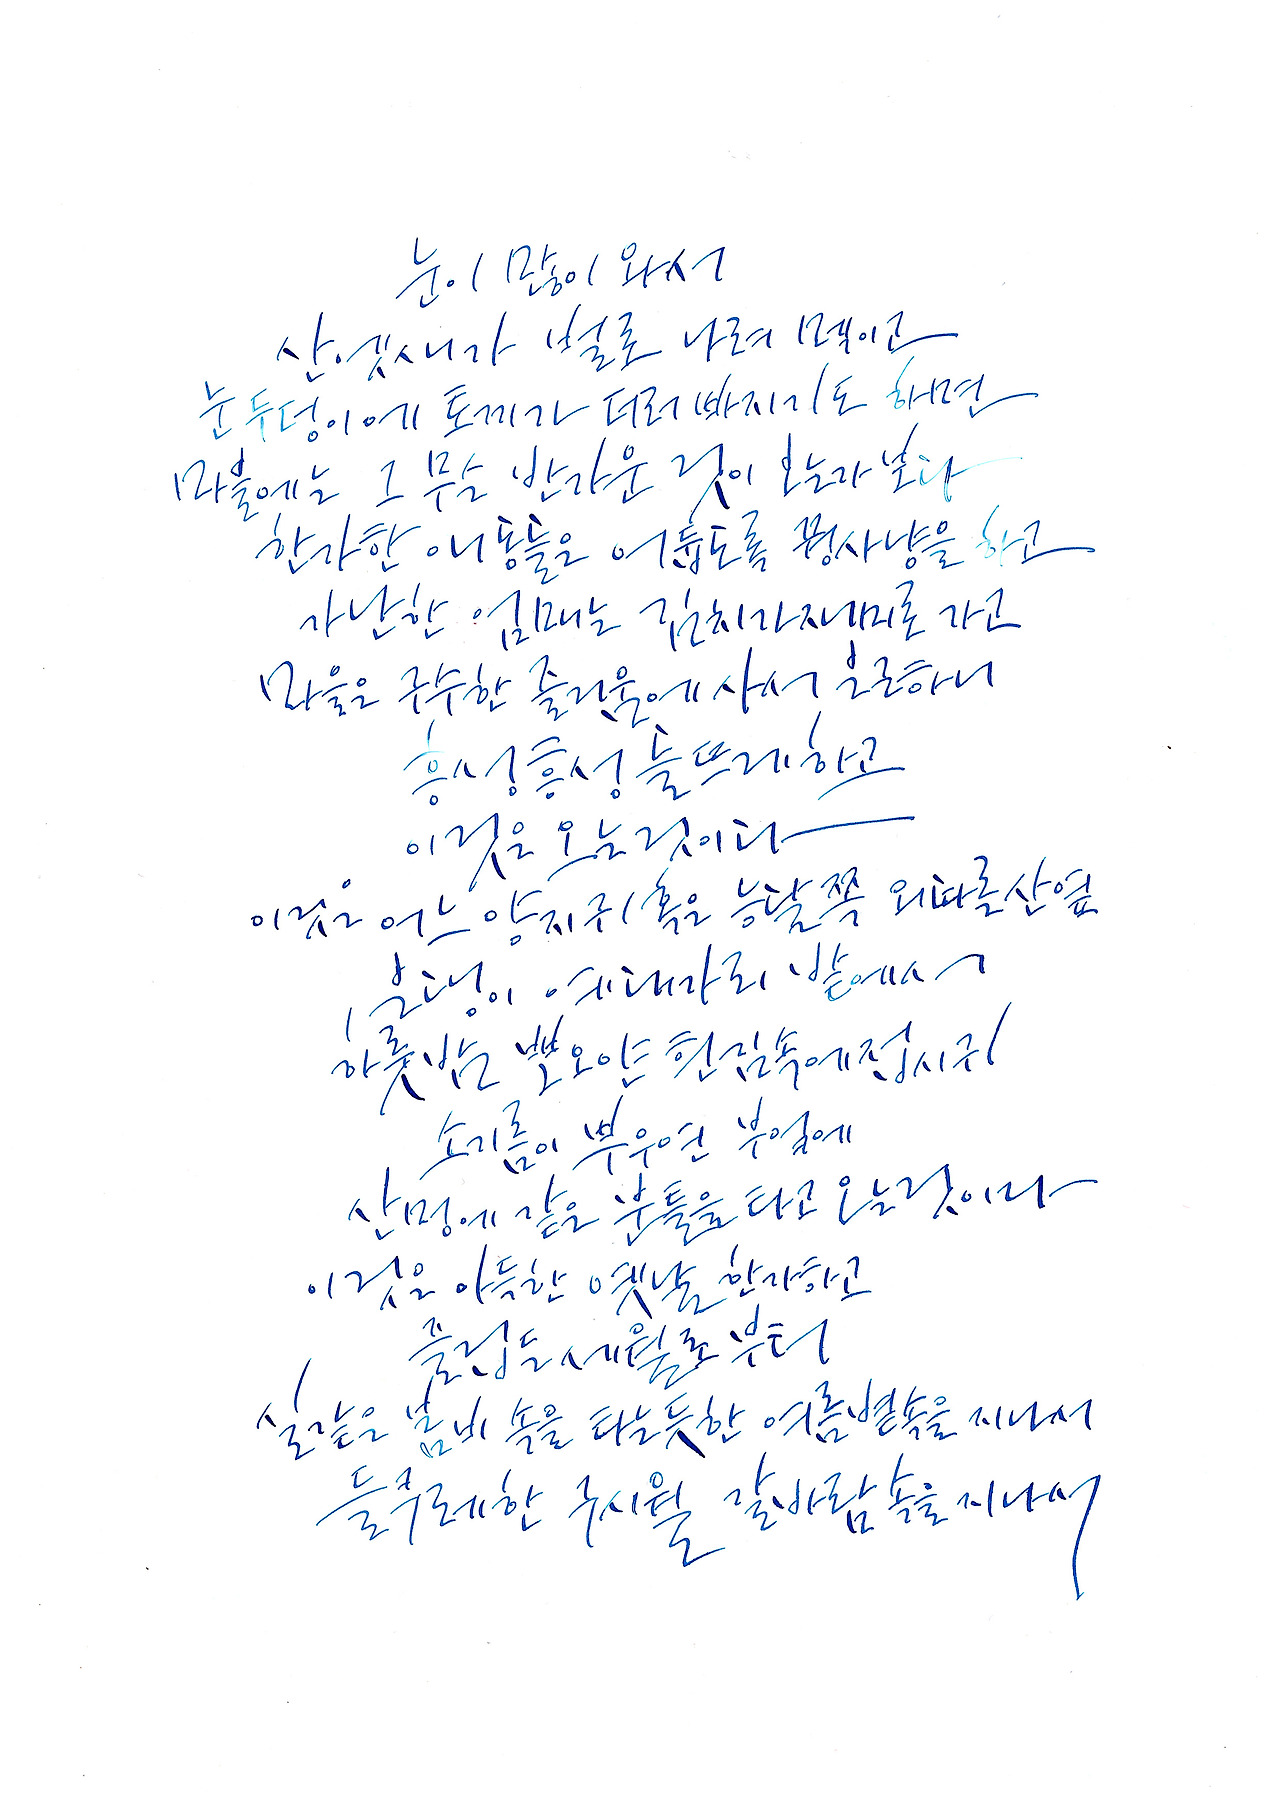 눈이 많이 와서
산엣새가 벌로 나려 멕이고
눈구덩이에 토끼가 더러 빠지기도 하면
마을에는 그 무슨 반가운 것이 오는가 보다
한가한 애동들은 어둡도록 꿩사냥을 하고
가난한 엄매는 김치가재미로 가고
마을은 구수한 즐거움에 사서 은근하니
흥성흥성 들뜨게 하고
이것은 오는 것이다
이것은 어느 양지귀 혹은 능달쪽 외따른 산옆
은댕이 예데가리 밭에서
하룻밤 뽀오얀 흰김 속에 접시귀
소기름이 뿌우연 부엌에
산멍에 같은 분틀을 타고 오는 것이다
이것은 아득한 옛날 한가하고
즐겁든 세월로부터
실같은 봄비 속을 타는듯한 여름볕 속을 지나서
들쿠레한 구시월 갈바람 속을 지나서